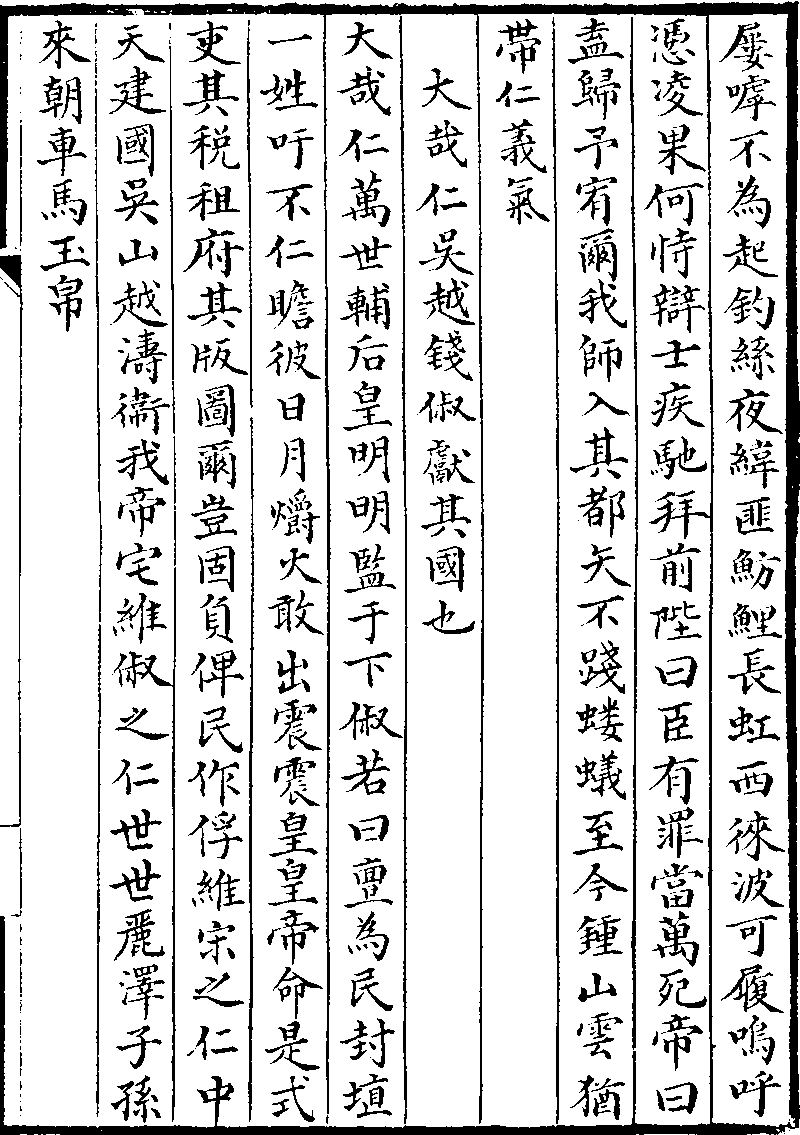 屢嘑不為起釣絲夜緯匪魴鯉長虹西徠波可履嗚呼
憑凌果何恃辯士疾馳拜前陛曰臣有罪當萬死帝曰
盍歸予宥爾我師入其都矢不踐蝼蟻至今鍾山雲猶
帶仁義氣
大哉仁吳越錢俶獻其國也
大哉仁萬世輔后皇明明監于下俶若曰亶為民封埴
一姓吁不仁瞻彼日月爝火敢出震震皇皇帝命是式
吏其税租府其版圖爾豈固負俾民作俘維宋之仁中
天建國吳山越濤衞我帝宅維俶之仁世世麗澤子孫
來朝車馬玉帛